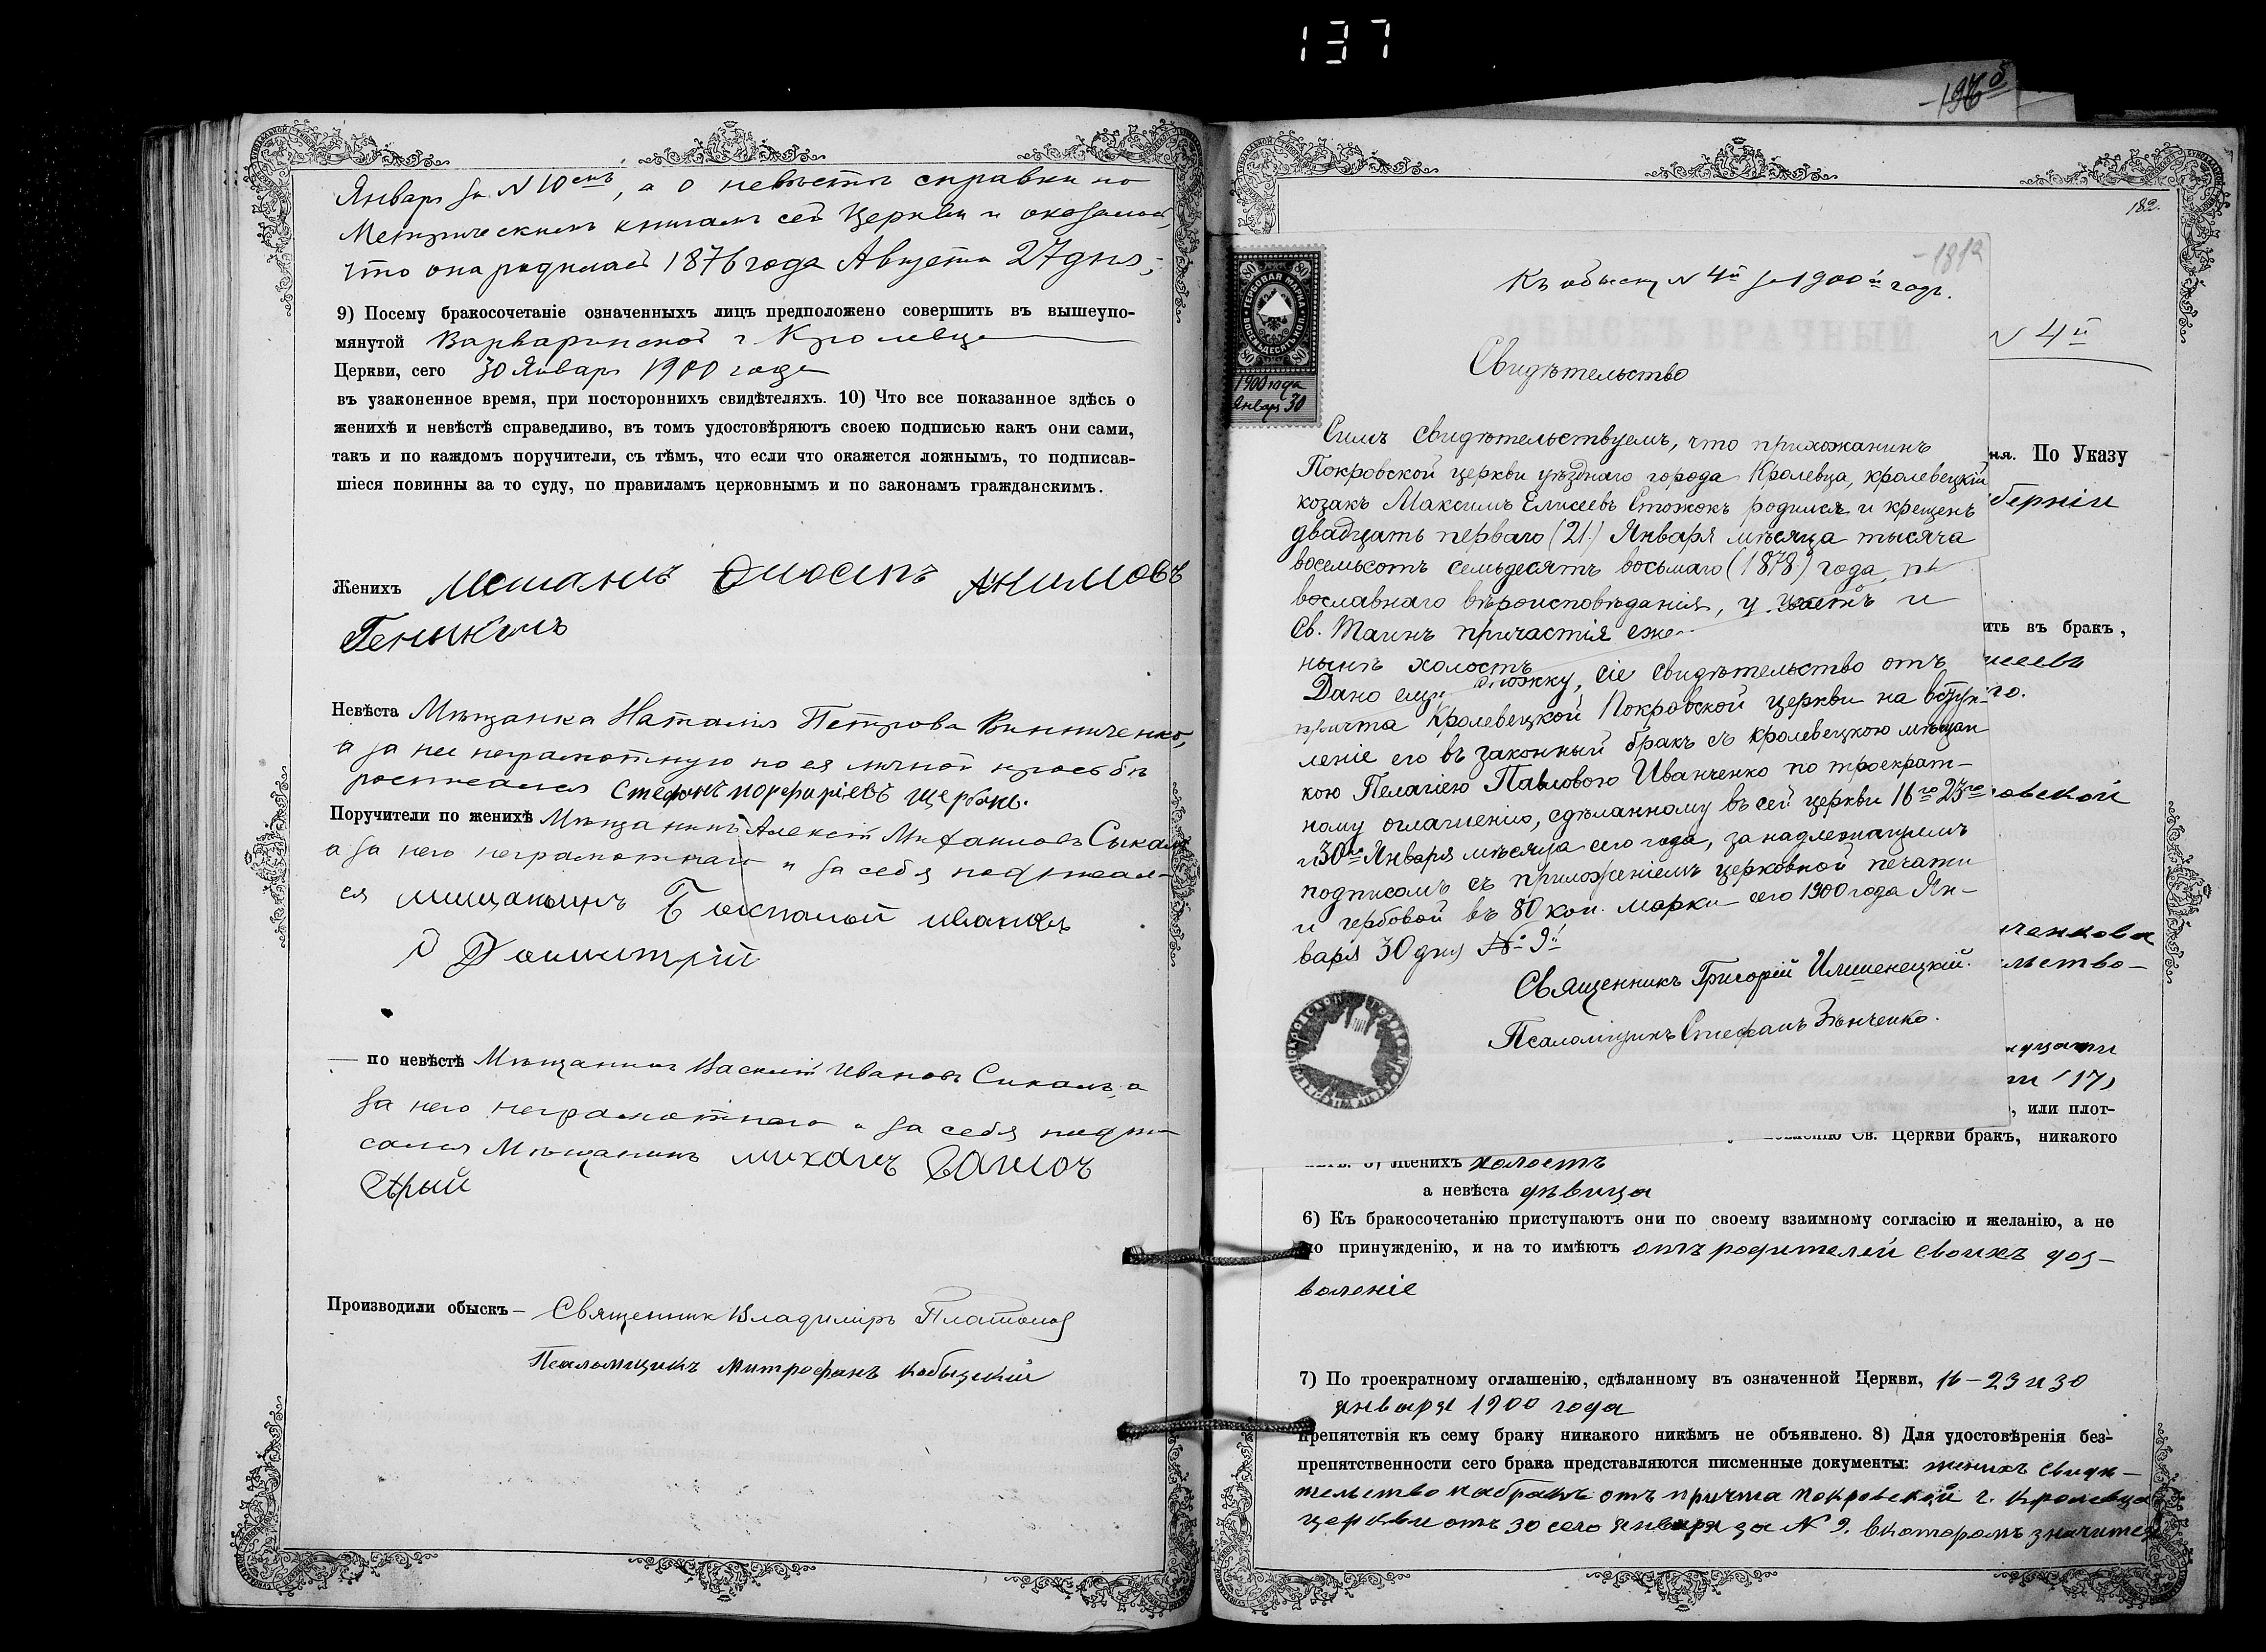 137
Январь за N 10емъ, а о невѣстѣ справки по
Метрическимъ книгамъ сей Церкви и оказалось,
что она родилась 1876 года Августа 27 дня;
9) Посему бракосочетаніе означенныхъ лицъ предположено совершить въ вышеупо-
мянутой Варваринской г Кролевца
Церкви, сего 30 Январь 1900 года
въ узаконенное время, при постороннихъ свидѣтеляхъ. 10) Что все показанное здѣсь о
женихѣ и невѣстѣ справедливо, въ томъ удостовѣряютъ своею подписью какъ они сами,
такъ и по каждомъ поручители, съ тѣмъ, что если что окажется ложнымъ, то подписав-
шіеся повинны за то суду, по правиламъ церковнымъ и по законамъ гражданскимъ.
Женихъ
Невѣста Мѣщанка Наталія Петрова Винниченко,
а за нее неграмотную по ея личной просьбѣ
росписался Стефанъ порфиріевъ Щербакъ.
Поручители по женихѣ Мѣщанинъ Алексѣй Михаиловъ
а за него неграмотнаго и за себя подписал-
ся мищанинъ ивановъ
Димитрій
— по невѣстѣ Мѣщанинъ Василій Ивановъ а
за него неграмотнаго и за себя подпи
сался Мѣщанинъ
Производили обыскъ— Священникъ Владиміръ Платонов
Псаломщикъ Митрофанъ Кобыцкій
182.
Къ обыску N 4й за 1900й годъ.
N 4й
80 80
ГЕРБОВАЯ МАРКА
ВОСЕМЬДЕСЯТЪ КОП.
80 80
1900 года
Январь 30
Свидѣтельство
Симъ свидѣтельствуемъ, что прихожанинъ
Покровской церкви уѣзднаго города Кролевца, кролевецкій
козакъ Максимъ Елисеевъ Стожокъ родился и крещенъ
двадцать перваго (21) Января мѣсяца тысяча
восемьсотъ семьдесятъ восьмаго (1878) года,
вославнаго вѣроисповѣданія, у и
Св. Таинъ причастія
нынѣ холостъ
Дано ему сіе свидѣтельство отъ
причта Кролевецкой Покровской церкви на вступ-
леніе его въ законный бракъ съ кролевецкою мѣщан
кою Пелагіею Павловою Иванченко по троекрат-
ному оглашенію, сдѣланному въ сей церкви 16го 23го
и 30го Января мѣсяца сего года, за надлежащимъ
подписомъ съ приложеніемъ церковной печати
и гербовой въ 80 коп. марки сего 1900 года Ян-
варя 30 дня № 9й
Священникъ Григорій Илшенецкій.
Псаломщикъ Стефанъ Зѣнченко.
ня. По Указу
берніи
ить въ бракъ,
исеевъ
го.
овской
ченкова
льство-
или плот-
Св. Церкви бракъ, никакого
Женихъ холостъ
а невѣста дѣвица
6) Къ бракосочетанію приступаютъ они по своему взаимному согласію и желанію, а не
по принужденію, и на то имѣютъ отъ родителей своихъ доз-
воленіе
7) По троекратному оглашенію, сдѣланному въ означенной Церкви, 16-23 и 30
января 1900 года
препятствія къ сему браку никакого никѣмъ не объявлено. 8) Для удостовѣренія без-
препятственности сего брака представляются писменные документы: женихъ свидѣ-
тельство на бракъ отъ причта покровской г. Кролевца
церкви отъ 30 сего января за N 9. вкоторомъ значится